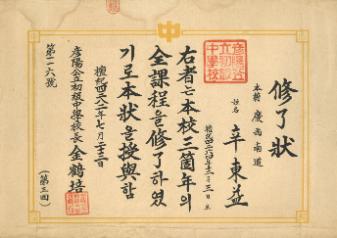 中
修了狀
本籍 慶尙南道
姓名 辛東益
檀紀四二六〇年十一月三日生
右者는本校三箇年의
全課程을修了하였
기로本狀을授與함
檀紀四二八二年七月二十三日
彦陽公立初級中學校長 金鶴培
第一一六號
(第三回)
彦陽公
立初級
中學校